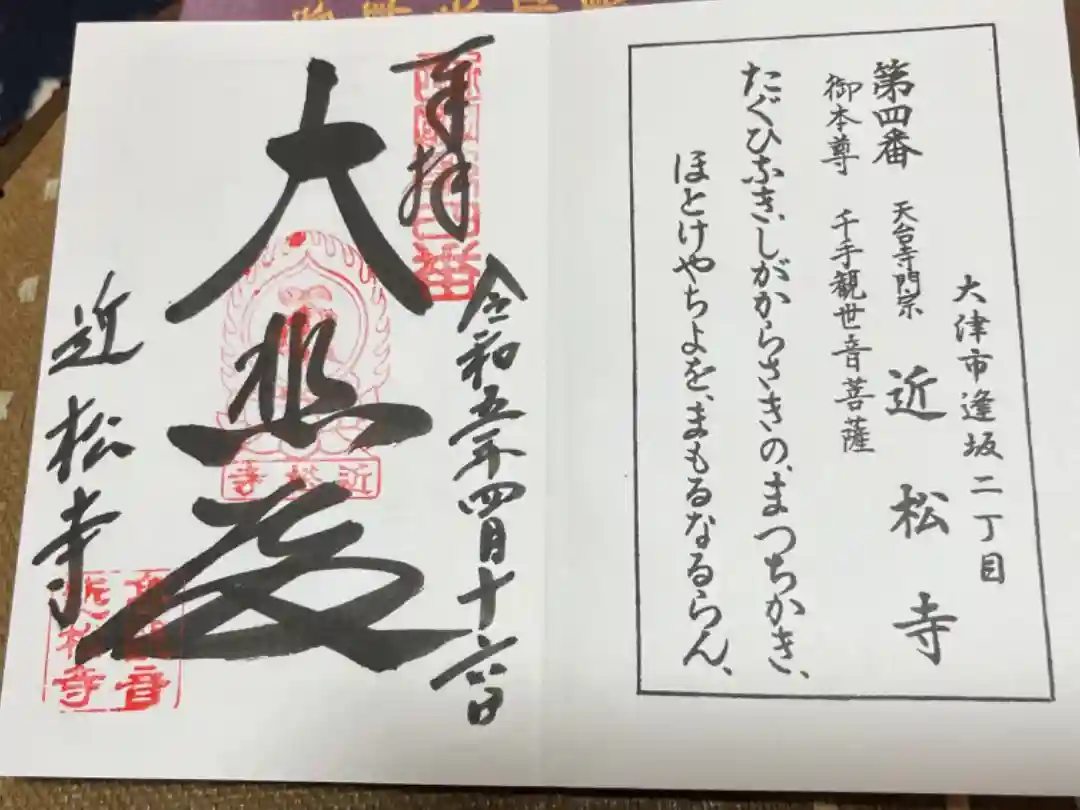 大津市逢坂二丁目
第四番 天台寺門宗 近松寺
御本尊 千手観世音菩薩
たぐひなき、しがからさきの、まつちかき、
ほとけやちよを、まもるなるらん、
奉拝
令和五年四月十六日
大悲殿
近松寺
近松寺
高観音
近松寺